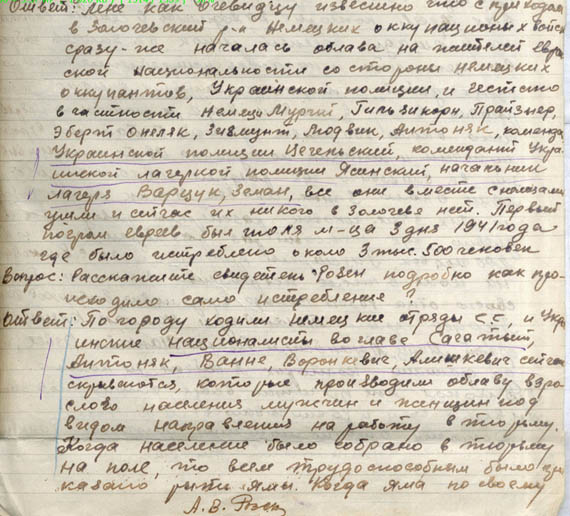 Ответ: Мне как очевидцу известно что с приходом
в Золочевский р-н Немецких оккупационых войск
сразу-же началась облава на жителей евре
ской национальности со стороны немецких
оккупантов, Украинской полиции, и гестапо
в частности Немецы
Эберт Онеляк, Зигмунт, Людвик, Антоняк, коменда
Украинской полиции Цегельский, комендант Укра
инской лагерной полиции Ясинский, начальник
лагеря Варцук, Земан, все они вместе с немцами
ушли и сейчас их никого в Золочеве нет. Первый
погром евреев был июля м-ца 3 дня 1941 года
где было истреблено около 3 тыс. 500 человек
Вопрос: Расскажите свидетель Розен подробно как про-
исходило само истребление?
Ответ: По городу ходили немецкие отряды С.С, и Укра
инские националисты во главе Сагатый,
Антоняк, Ванне, Воронкевич, Алишкевич сейчас
скрываются, которые производили облаву взро
слого населения мужчин и женщин под
видом направления на работу в тюрьму.
Когда население было собрано в тюрьму
на поле, то всем трудоспособным было при
казано рыть ямы. Когда яма по своему
А.В.